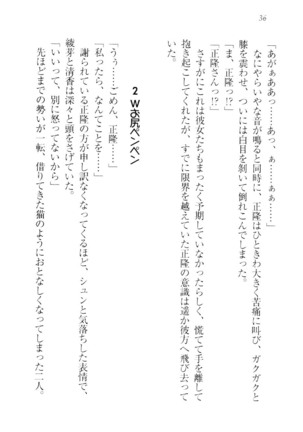 56
「あがぁああああ……あっ、ぁ……ぁあ……」
なにやらいやな音が鳴ると同時に、正隆はひときわ大きく苦痛に叫び、ガクガクと
膝を震わせ、ついには白目を剝いて倒れこんでしまった。
「ま、正隆っ!?」
「正隆さんっ!?」
さすがにこれは彼女たちもまったく予期していなかったらしく、慌てて手を離して
抱き起こしてくれたが、すでに限界を越えていた正隆の意識は遥か彼方へ飛び去って
いた。
2 Wお尻ペンペン
「うぅ……ごめん、正隆……」
「私ったら、なんてことを……」
謝られている正隆の方が申し訳なくなってくるほど、シュンと気落ちした表情で、
綾芽と清香は深々と頭をさげていた。
「いいって、別に怒ってないから」
先ほどまでの勢いが一転、借りてきた猫のようにおとなしくなってしまった二人。